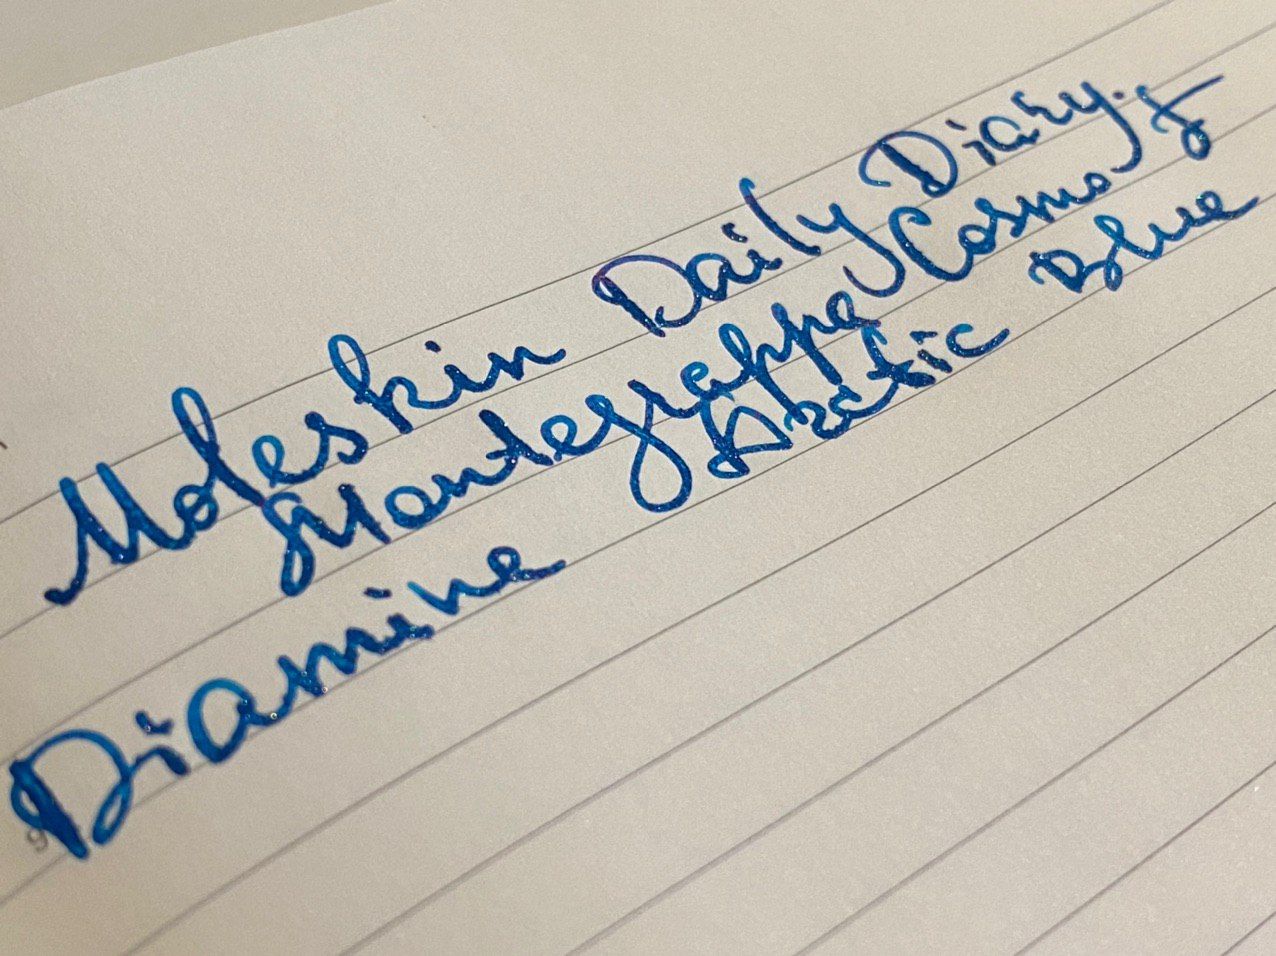 Moleskin Daily Diary.
Montegrappa Cosmo F
Diamine Arctic Blue
9